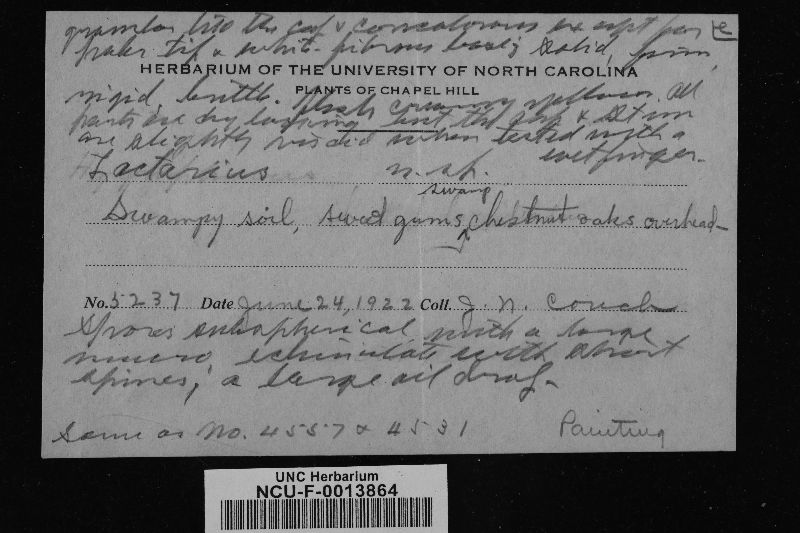 granular like the cap & concolorous except for
paler tip & white fibrous base; solid, firm,
HERBARIUM OF THE UNIVERSITY OF NORTH CAROLINA
PLANTS OF CHAPEL HILL
rigid, brittle. Flesh creamy yellow. All
parts are dry looking but the cap & stem
are slightly viscid when tested with a
wet finger.
Lactarius n. sp.
swamp
Swampy soil, sweet gums, chestnut oaks overhead
No. 5237 Date June 24, 1922 Coll. J. N. Couch
Spores subspherical with a large
mucro, echinulate with short
spines; a large oil drop.
Same as No. 4557 & 4531 Painting
UNC Herbarium
NCU-F-0013864